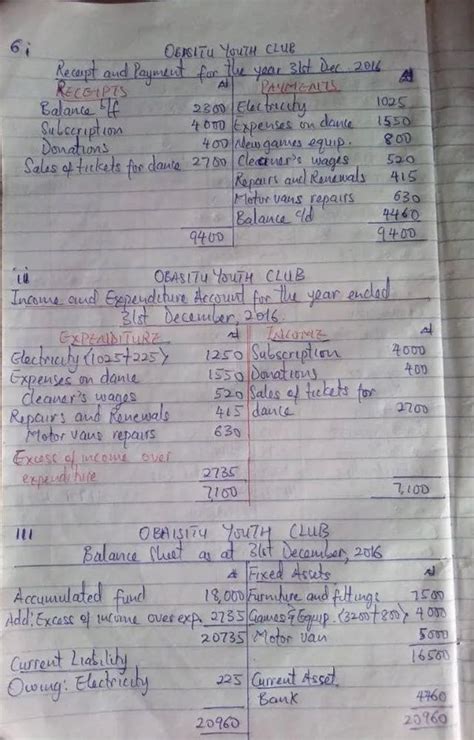 6 i OBASITU YOUTH CLUB
Receipt and Payment for the year 31st Dec. 2016
RECEIPTS ₦ PAYMENTS ₦
Balance b/f 2300 Electricity 1025
Subscription 4000 Expenses on dance 1550
Donations 400 New games equip. 800
Sales of tickets for dance 2700 Cleaner's wages 520
Repairs and Renewals 415
Motor vans repairs 630
Balance c/d 4460
9400 9400
ii OBASITU YOUTH CLUB
Income and Expenditure Account for the year ended
31st December, 2016.
EXPENDITURE ₦ INCOME ₦
Electricity (1025+225) 1250 Subscription 4000
Expenses on dance 1550 Donations 400
Cleaner's wages 520 Sales of tickets for
Repairs and Renewals 415 dance 2700
Motor vans repairs 630
Excess of income over
expenditure 2735
7,100 7,100
iii OBAISITU YOUTH CLUB
Balance Sheet as at 31st December, 2016
₦ Fixed Assets ₦
Accumulated fund 18,000 Furniture and fittings 7500
Add: Excess of income over exp. 2735 Games & Equip. (3200+800) 4000
20735 Motor van 5000
Current Liability 16500
Owing: Electricity 225 Current Asset.
Bank 4460
20960 20960